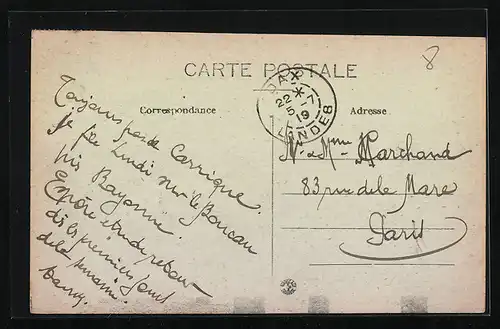 8
CARTE POSTALE
DAX
22 *
5 -7
19
LANDES
Correspondance
Adresse
Toujours pas de Carrique.
Je file lundi sur le Boucau
puis Bayonne.
Espère être de retour
dès les premiers jours
de la semaine.
M. & Mme Marchand
83 rue de la Mare
Paris